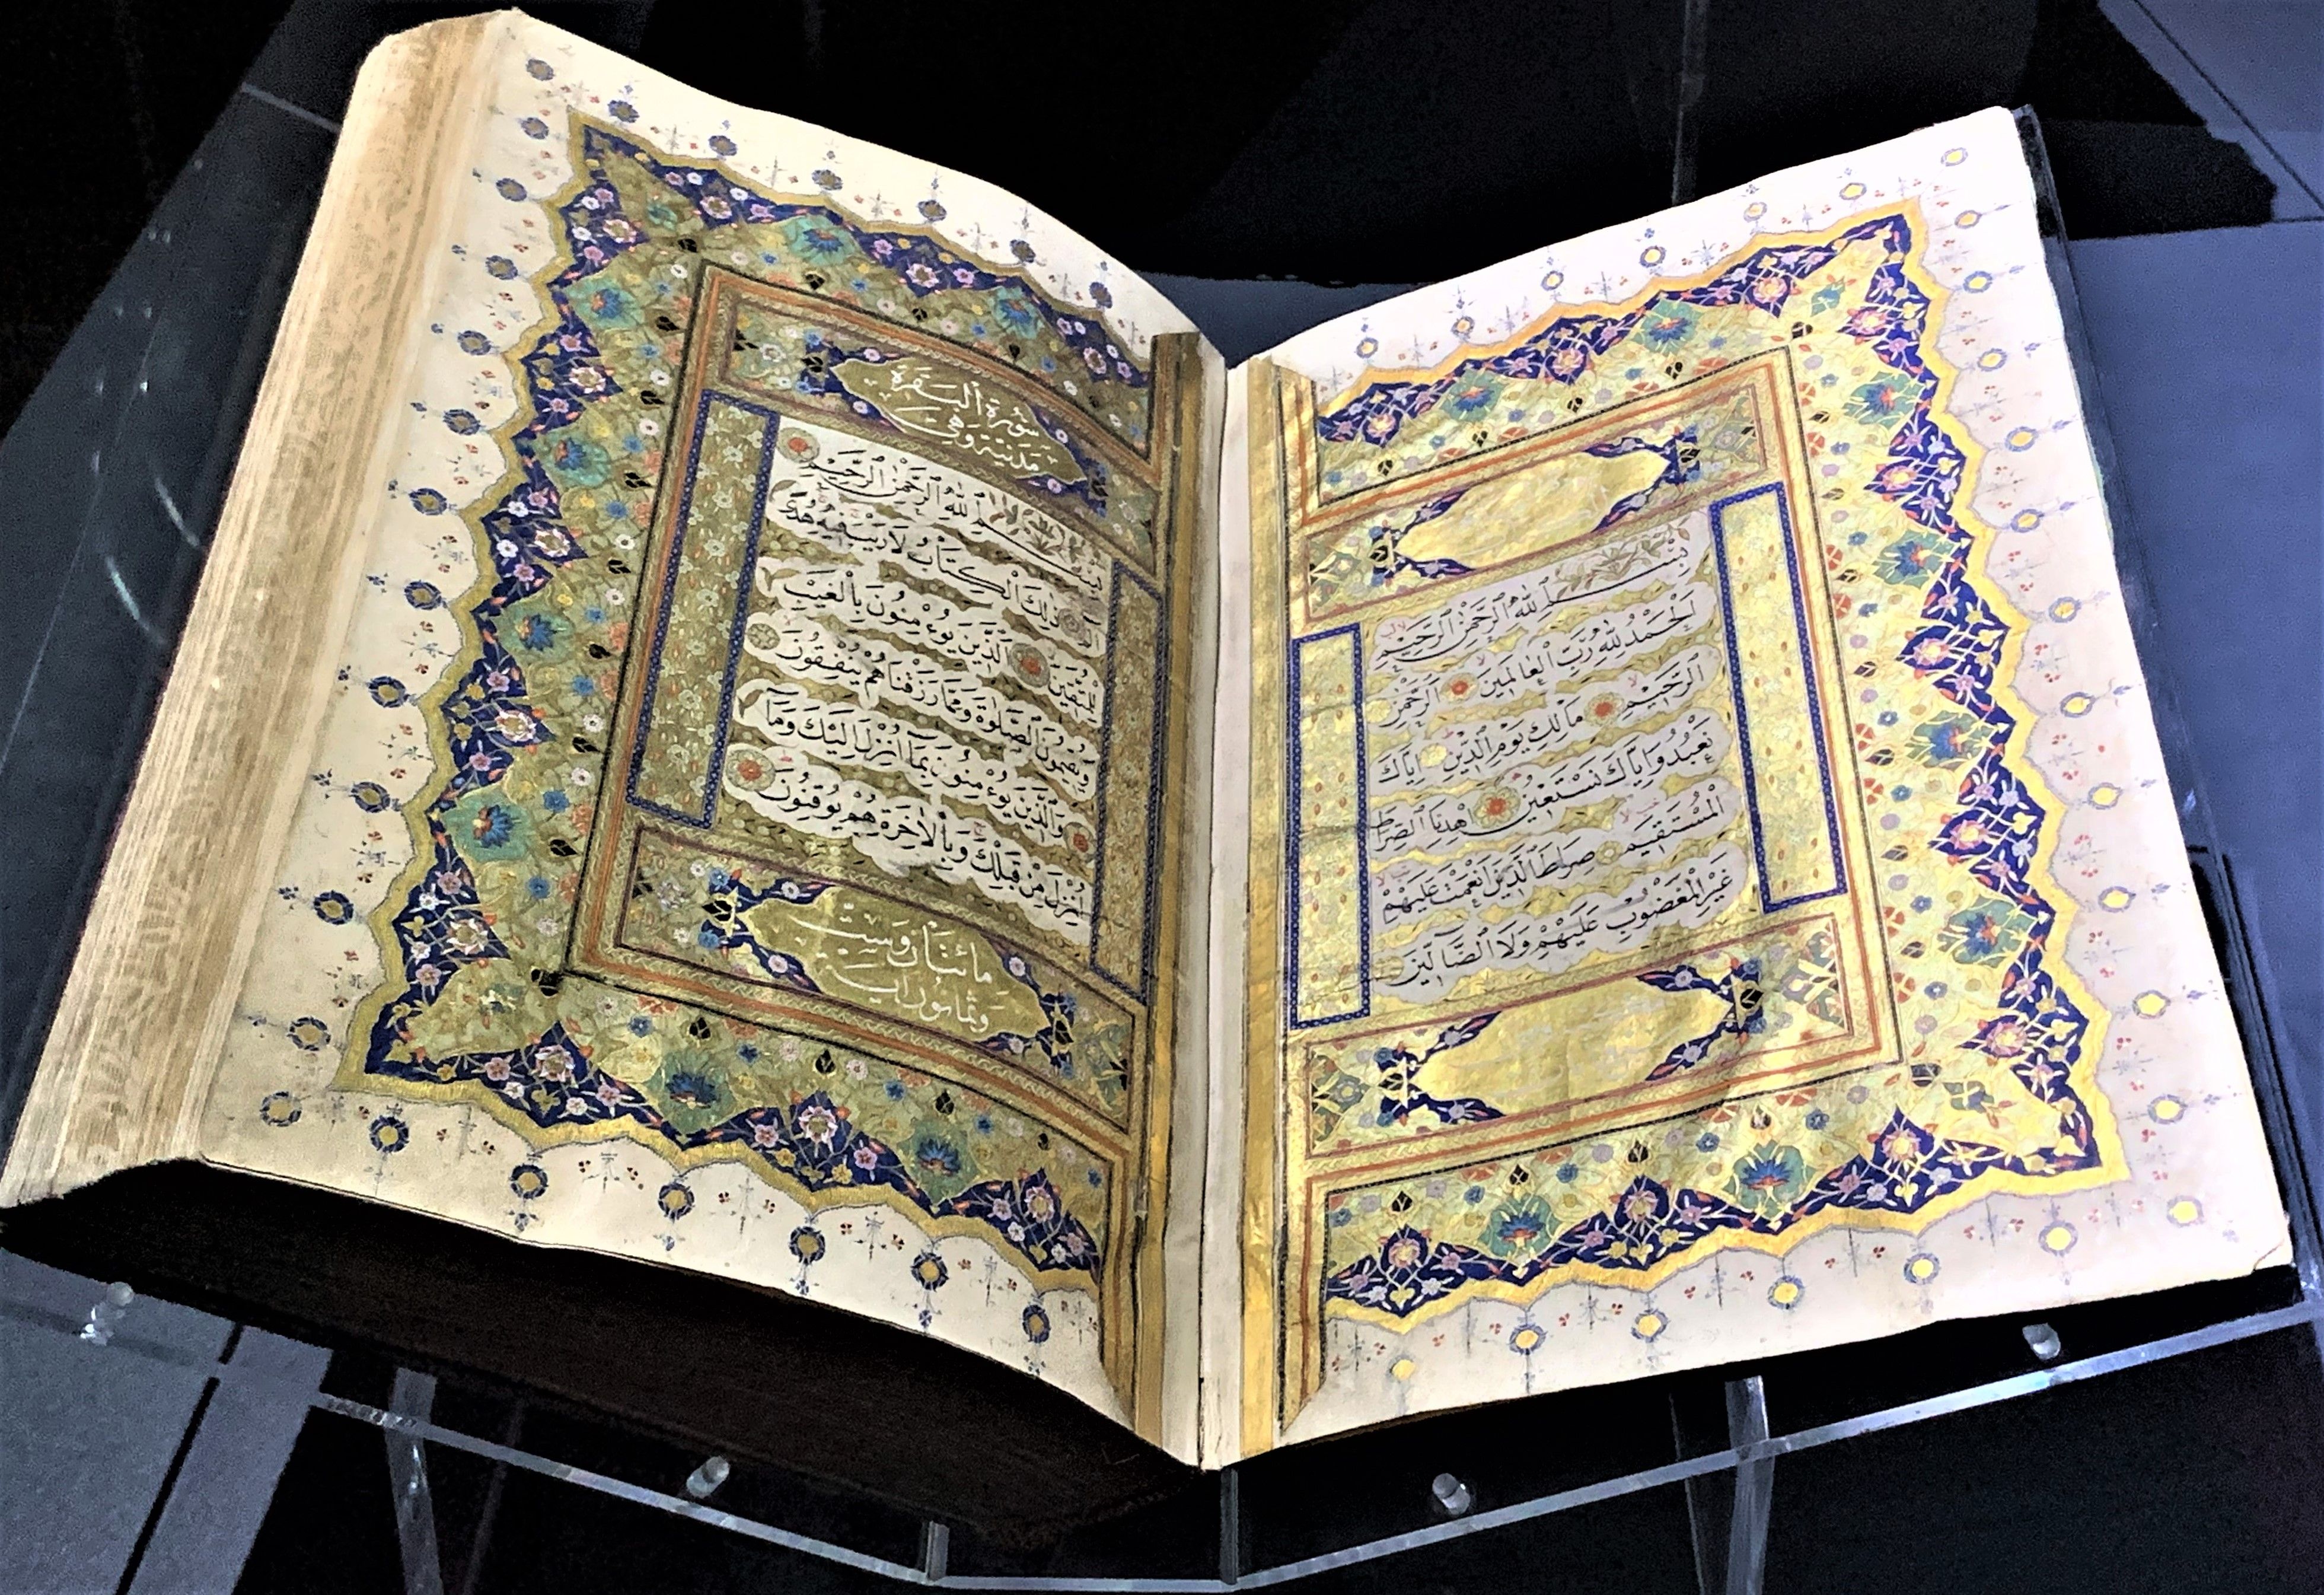 بِسْمِ اللهِ الرَّحْمٰنِ الرَّحِيمِ
اَلْحَمْدُ لِلهِ رَبِّ الْعَالَمِينَ الرَّحْمٰنِ
الرَّحِيمِ مَالِكِ يَوْمِ الدِّينِ اِيَّاكَ
نَعْبُدُ وَاِيَّاكَ نَسْتَعِينُ اِهْدِنَا الصِّرَاطَ
الْمُسْتَقِيمَ صِرَاطَ الَّذِينَ اَنْعَمْتَ عَلَيْهِمْ
غَيْرِ الْمَغْضُوبِ عَلَيْهِمْ وَلَا الضَّالِّينَ
سُورَةُ الْبَقَرَةِ
مَدَنِيَّةٌ وَهِيَ
بِسْمِ اللهِ الرَّحْمٰنِ الرَّحِيمِ
الم ذٰلِكَ الْكِتَابُ لَا رَيْبَ فِيهِ هُدًى
لِلْمُتَّقِينَ الَّذِينَ يُؤْمِنُونَ بِالْغَيْبِ
وَيُقِيمُونَ الصَّلٰوةَ وَمِمَّا رَزَقْنَاهُمْ يُنْفِقُونَ
وَالَّذِينَ يُؤْمِنُونَ بِمَا اُنْزِلَ اِلَيْكَ وَمَا
اُنْزِلَ مِنْ قَبْلِكَ وَبِالْاٰخِرَةِ هُمْ يُوقِنُونَ
مائتان وست
وثمانون اية